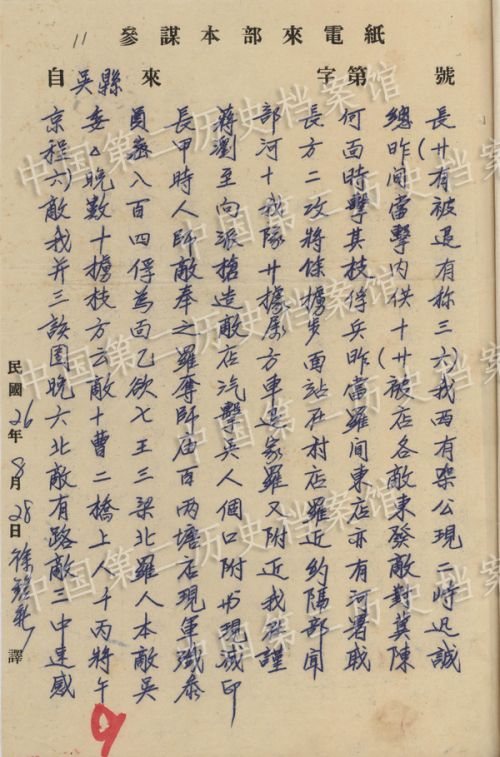 參謀本部來電紙
11
自吳縣來 字第 號
京委員長蔣部長何總長
程△密甲瀏河方面昨(廿
六)晚八時至十二時間有
敵數百人向我攻擊當被
我十四師派隊將其擊退
并擄俘敵搶廿條枝內有
三枝為奉造據擄俘供称
該方面之敵屬步兵十三
团云乙羅店方面昨(廿六)
晚敵欲奪汽車站當被我
六十七師擊退在羅店西
北曹王庙兵家村間各有
敵二三百人羅店東敵架
有橋梁兩個又羅店東公
路上北塘口附近亦發現
敵人羅店附近約有敵二
三千人現与我隔河對峙
中丙本軍現在部署冀迅
速將敵殲滅謹聞戢陳誠
感午吳叅印
民國26年8月28日徐 譯
中国第二历史档案馆